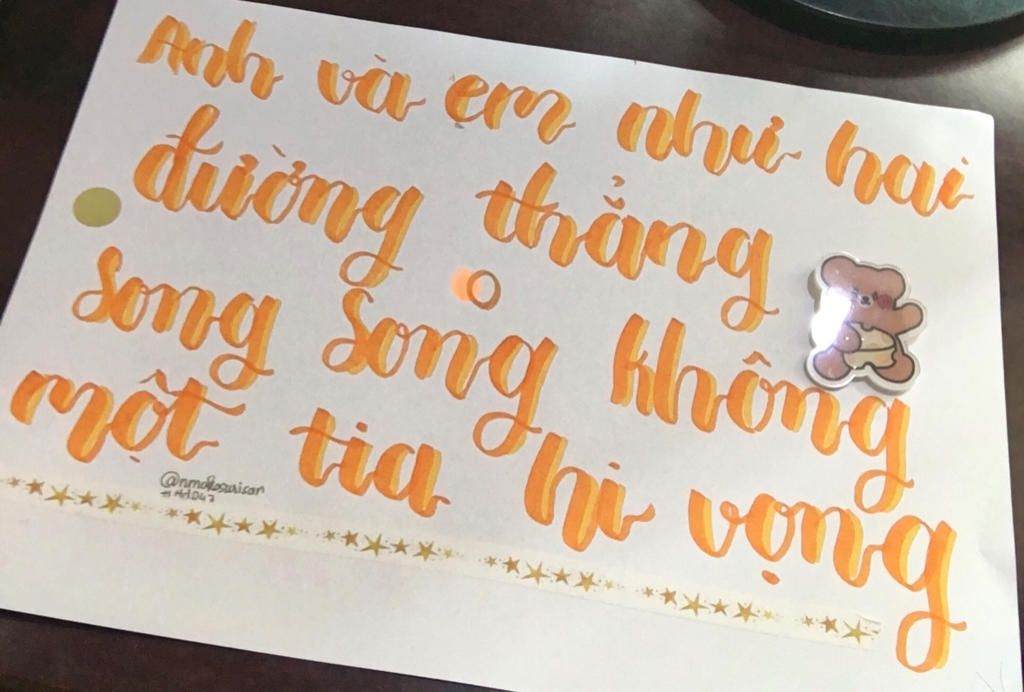 Anh và em như hai
đường thẳng
song song không
một tia hi vọng